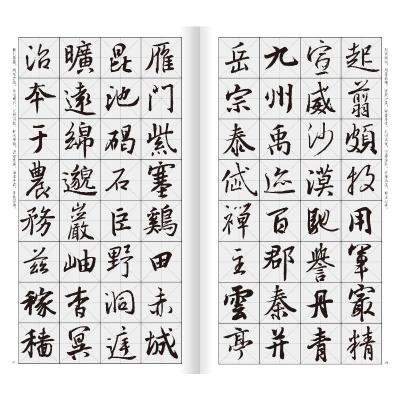 起翦頗牧用軍寂精
宣威沙漠馳譽丹青
九州禹迹百郡秦并
岳宗泰岱禪主雲亭
雁門紫塞鷄田赤城
昆池碣石巨野洞庭
曠遠綿邈巖岫杳冥
治本于農務茲稼穡